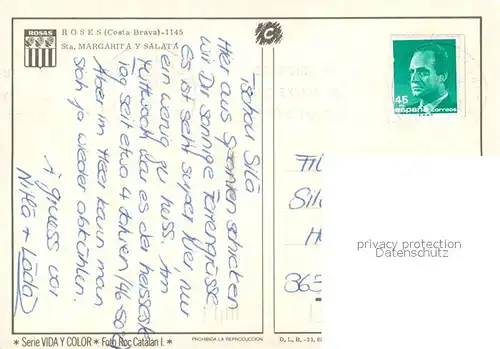 ROSAS
ROSES (Costa Brava)-1145
Sta. MARGARITA Y SALATA
C
45
españa Correos
Tschau Silä
Hier aus Spanien schicken
wir Dir sonnige Feriengrüsse
Es ist sehr super hier, nur
ein wenig zu heiss. Am
Mittwoch war es der heisseste
Tag seit etwa 4 Jahren (46
Aber im Meer kann man
sich ja wieder abkühlen.
gruess vor
+
privacy protection
Datenschutz
365
* Serie VIDA Y COLOR * Foto Roc Catalan I. *
PROHIBIDA LA REPRODUCCION
D. L. B.